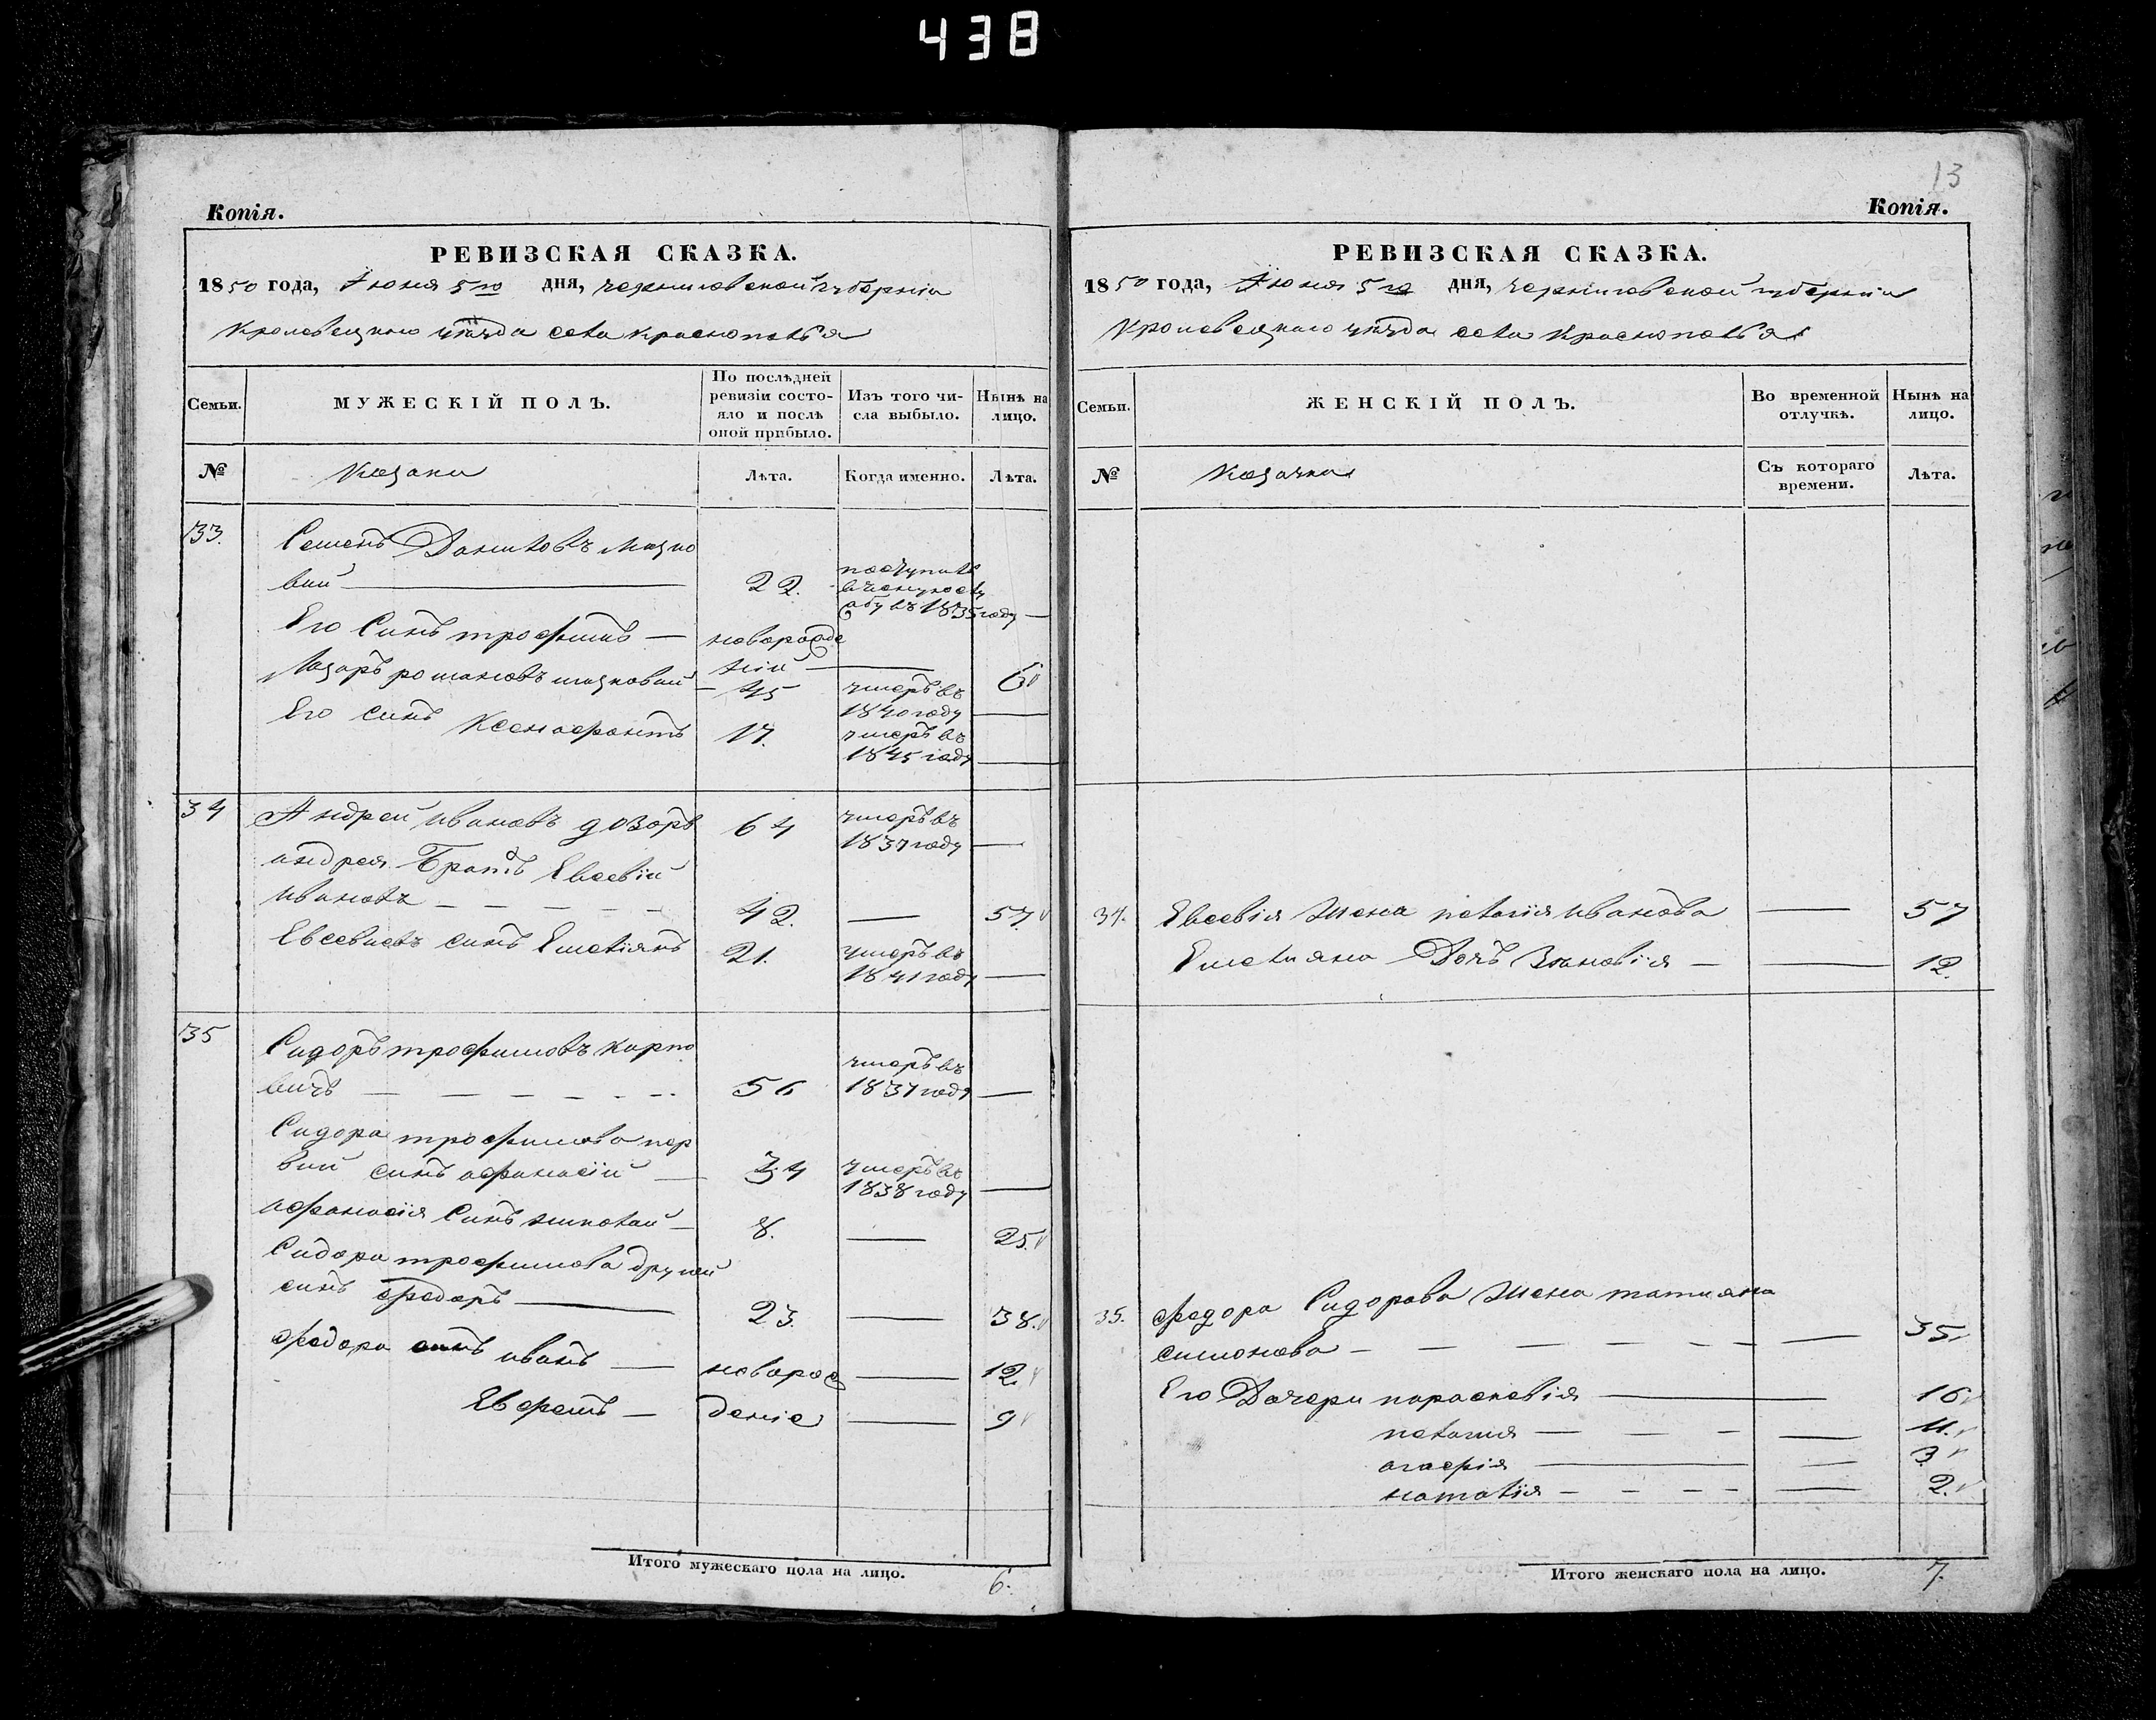 438
Копія.
РЕВИЗСКАЯ СКАЗКА.
1850 года, Июня 5го дня, черниговской губерніи
Кролевецкаго уѣзда села Краснополья
Семьи.
МУЖЕСКІЙ ПОЛЪ.
По послѣдней ревизіи состояло и послѣ оной прибыло.
Изъ того числа выбыло.
Нынѣ на лицо.
№
Козаки
Лѣта.
Когда именно.
Лѣта.
33. Семенъ Даниловъ
вий — 22. поступилъ
въ 1835 году —
Его Синъ трофимъ — новорожде
ній — 6
Лазарь романовъ — 45 умеръ въ
1840 году —
Его синъ Ксенофонтъ 17. умеръ въ
1845 году —
34 Андрей Ивановъ дозоръ 64 умеръ въ
1837 году —
андрея Братъ Евсевій
Ивановъ — — — — — 42. — 57.
Евсевиевъ синъ Емеліянъ 21. умеръ въ
1841 году —
35 Сидоръ трофимовъ карпо
вичъ — — — — — 56 умеръ въ
1837 году —
Сидора трофимова пер
вий синъ афанасій — 34 умеръ въ
1838 году —
афанасія Синъ николай — 8. — 25.
Сидора трофимова другой
синъ федоръ — 23. — 38.
федора синъ иванъ — новорож — 12.
Ефремъ — деніе — 9
Итого мужескаго пола на лицо. 6.
13
Копія.
РЕВИЗСКАЯ СКАЗКА.
1850 года, Июня 5го дня, черниговской губерніи
Кролевецкаго уѣзда села Краснополья
Семьи.
ЖЕНСКІЙ ПОЛЪ.
Во временной отлучкѣ.
Нынѣ на лицо.
№
Козачки
Съ котораго времени.
Лѣта.
34. Евсевія Жена пелагія Иванова — 57
Емелияна Дочь Зѣновія — — 12.
35. федора Сидорова Жена татияна
симонова — — — — — — — 35
Его Дочери параскевія — — 16
пелагия — — — — 11.
агафія — — 3
наталія — — — — — 2.
Итого женскаго пола на лицо. 7.